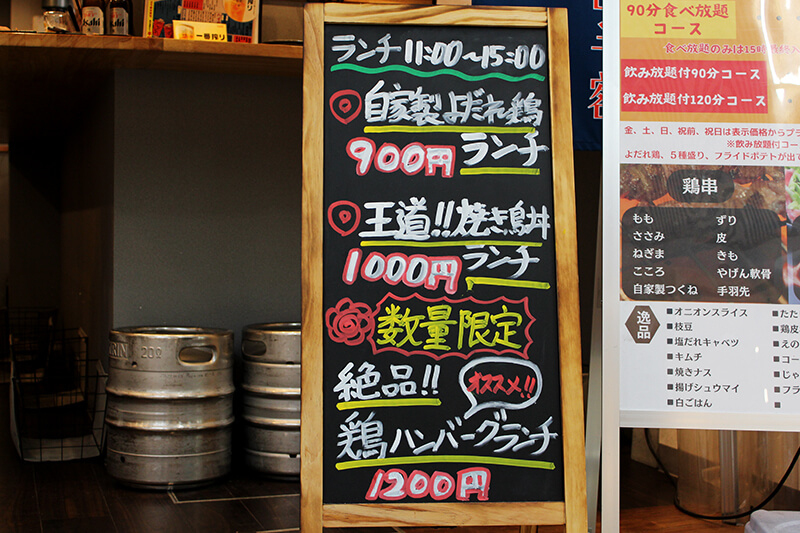 ランチ11:00〜15:00
自家製よだれ鶏
900円ランチ
王道!!焼き鳥丼
1000円ランチ
数量限定
絶品!!
オススメ!!
鶏ハンバーグランチ
1200円
Asahi
Asahi
一番搾り
KIRIN 20ℓ
90分食べ放題
コース
食べ放題のみは15時
飲み放題付90分コース
飲み放題付120分コース
金、土、日、祝前、祝日は表示価格からプラ
※飲み放題付コー
よだれ鶏、5種盛り、フライドポテトが出て
鶏串
もも ずり
ささみ 皮
ねぎま きも
こころ やげん軟骨
自家製つくね 手羽先
逸品
■オニオンスライス ■たた
■枝豆 ■鶏皮
■塩だれキャベツ ■えの
■キムチ ■コー
■焼きナス ■じゃ
■揚げシュウマイ ■フラ
■白ごはん